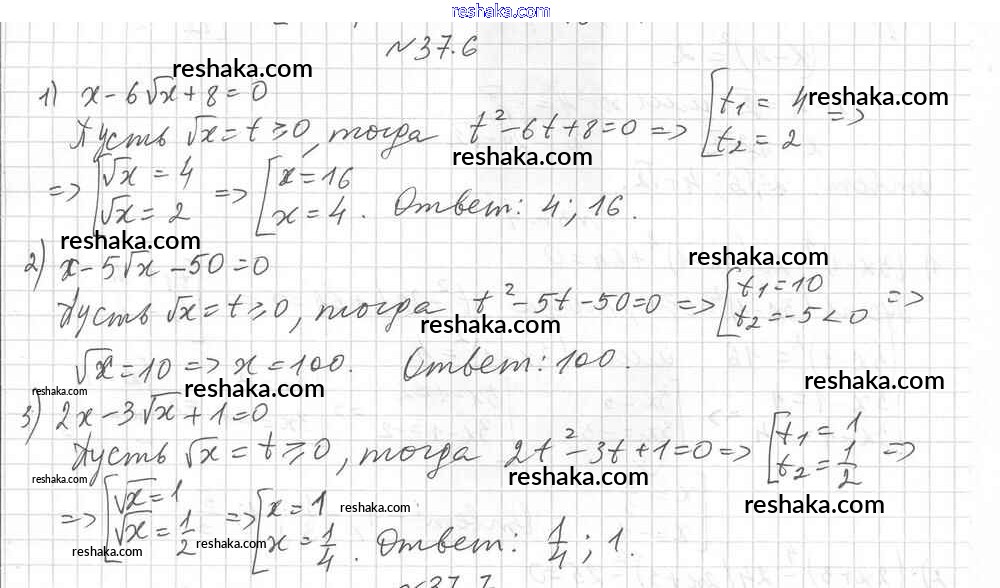 reshaka.com
№37.6
reshaka.com
1) x - 6√x + 8 = 0
Пусть √x = t ≥ 0, тогда t² - 6t + 8 = 0 => [t₁ = 4 t₂ = 2 =>
reshaka.com
reshaka.com
=> [√x = 4 √x = 2 => [x = 16 x = 4. Ответ: 4; 16.
reshaka.com
reshaka.com
2) x - 5√x - 50 = 0
Пусть √x = t ≥ 0, тогда t² - 5t - 50 = 0 => [t₁ = 10 t₂ = -5 < 0 =>
reshaka.com
√x = 10 => x = 100. Ответ: 100.
reshaka.com
reshaka.com
reshaka.com
3) 2x - 3√x + 1 = 0
Пусть √x = t ≥ 0, тогда 2t² - 3t + 1 = 0 => [t₁ = 1 t₂ = 1/2 =>
reshaka.com
reshaka.com
reshaka.com
=> [√x = 1 √x = 1/2 => [x = 1 x = 1/4. Ответ: 1/4; 1.
reshaka.com
reshaka.com
reshaka.com
№37.7